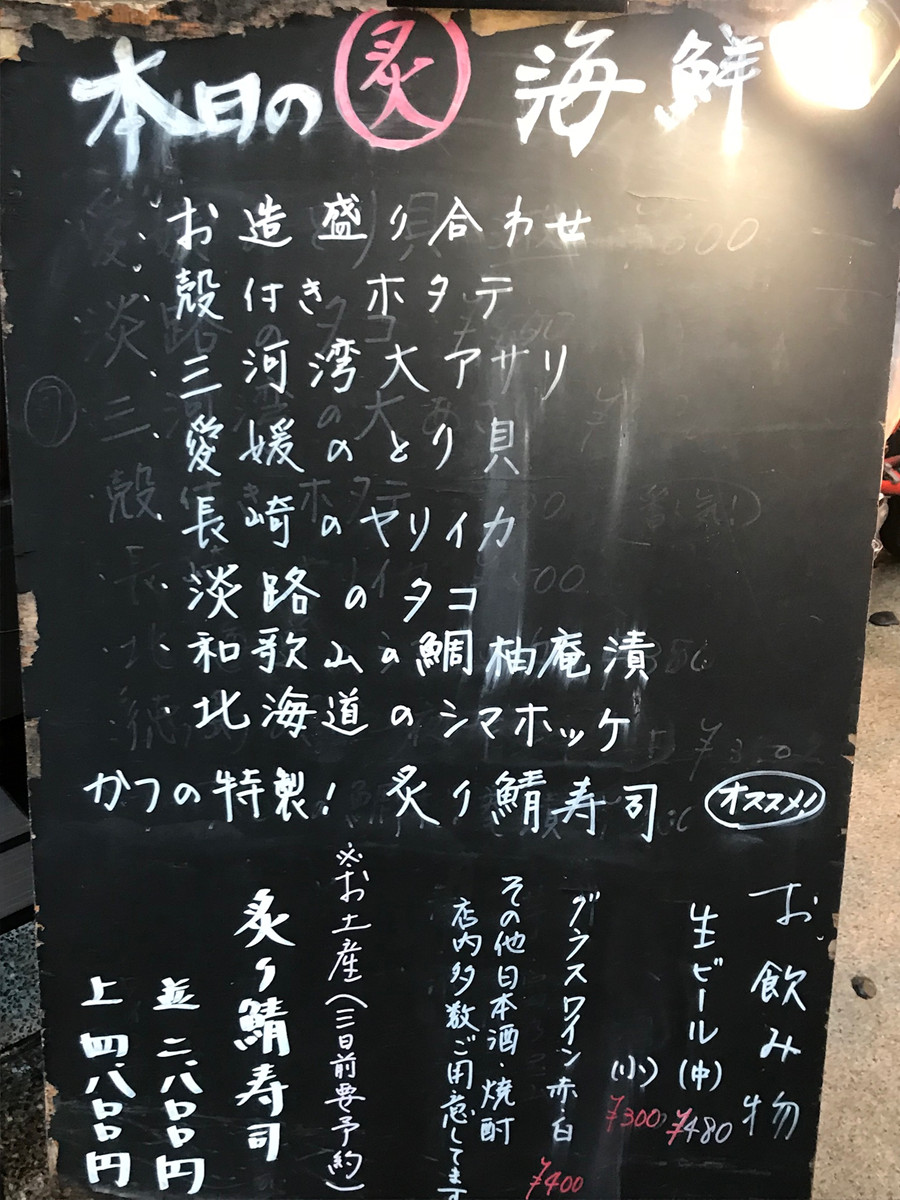 本日の炙海鮮
・お造盛り合わせ
・殻付きホタテ
・三河湾大アサリ
・愛媛のとり貝
・長崎のヤリイカ
・淡路のタコ
・和歌山の鯛柚庵漬
・北海道のシマホッケ
かつの特製！炙り鯖寿司 オススメ！
お飲み物
生ビール(中) ¥480
(小) ¥300
グラスワイン赤・白 ¥400
その他日本酒・焼酎
店内多数ご用意してます
※お土産(三日前要予約)
炙り鯖寿司
並 二、八〇〇円
上 四、八〇〇円